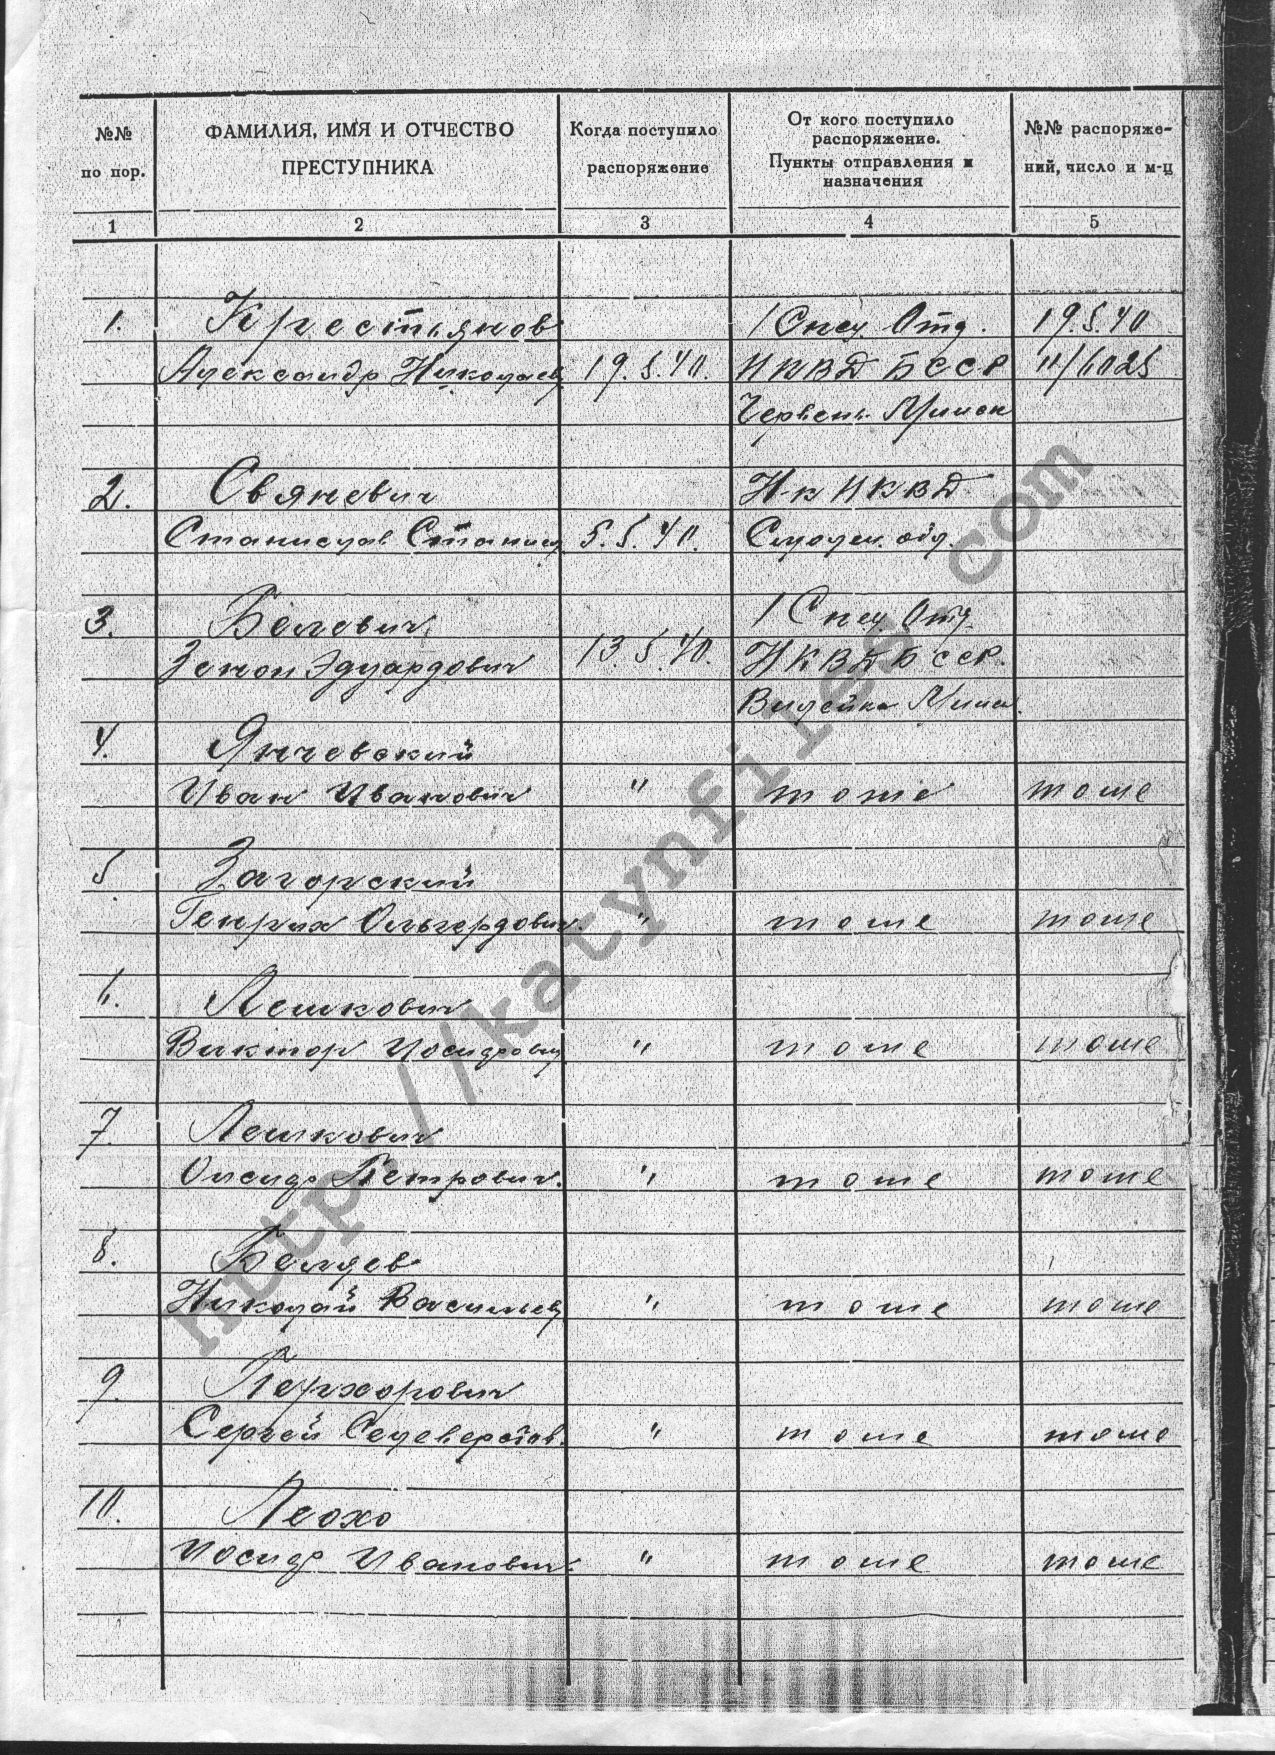 №№ по пор.
ФАМИЛИЯ, ИМЯ И ОТЧЕСТВО ПРЕСТУПНИКА
Когда поступило распоряжение
От кого поступило распоряжение. Пункты отправления и назначения
№№ распоряжений, число и м-ц
1 2 3 4 5
1. Крестьянов 1 Спец. Отд. 19.5.40
Александр Николаев 19.5.40. НКВД БССР 11/6025
Червень Минск
2. Свяневич Н-к НКВД
Станислав Станисл 5.5.40. Смолен. обл.
3. Белевич 1 Спец Отд
Зенон Эдуардович 13.5.40. НКВД БССР.
Вилейка Минск.
4. Янчевский
Иван Иванович " тоже тоже
5 Загорский
Генрих Ольгердович. " тоже тоже
6. Лешкович
Виктор Иосифович " тоже тоже
7. Лешкович
Петрович. " тоже тоже
8. Беляев
Николай Васильев " тоже тоже
9.
Сергей " тоже тоже
10. Леохо
Иосиф Иванович. " тоже тоже
http://katynfiles.com